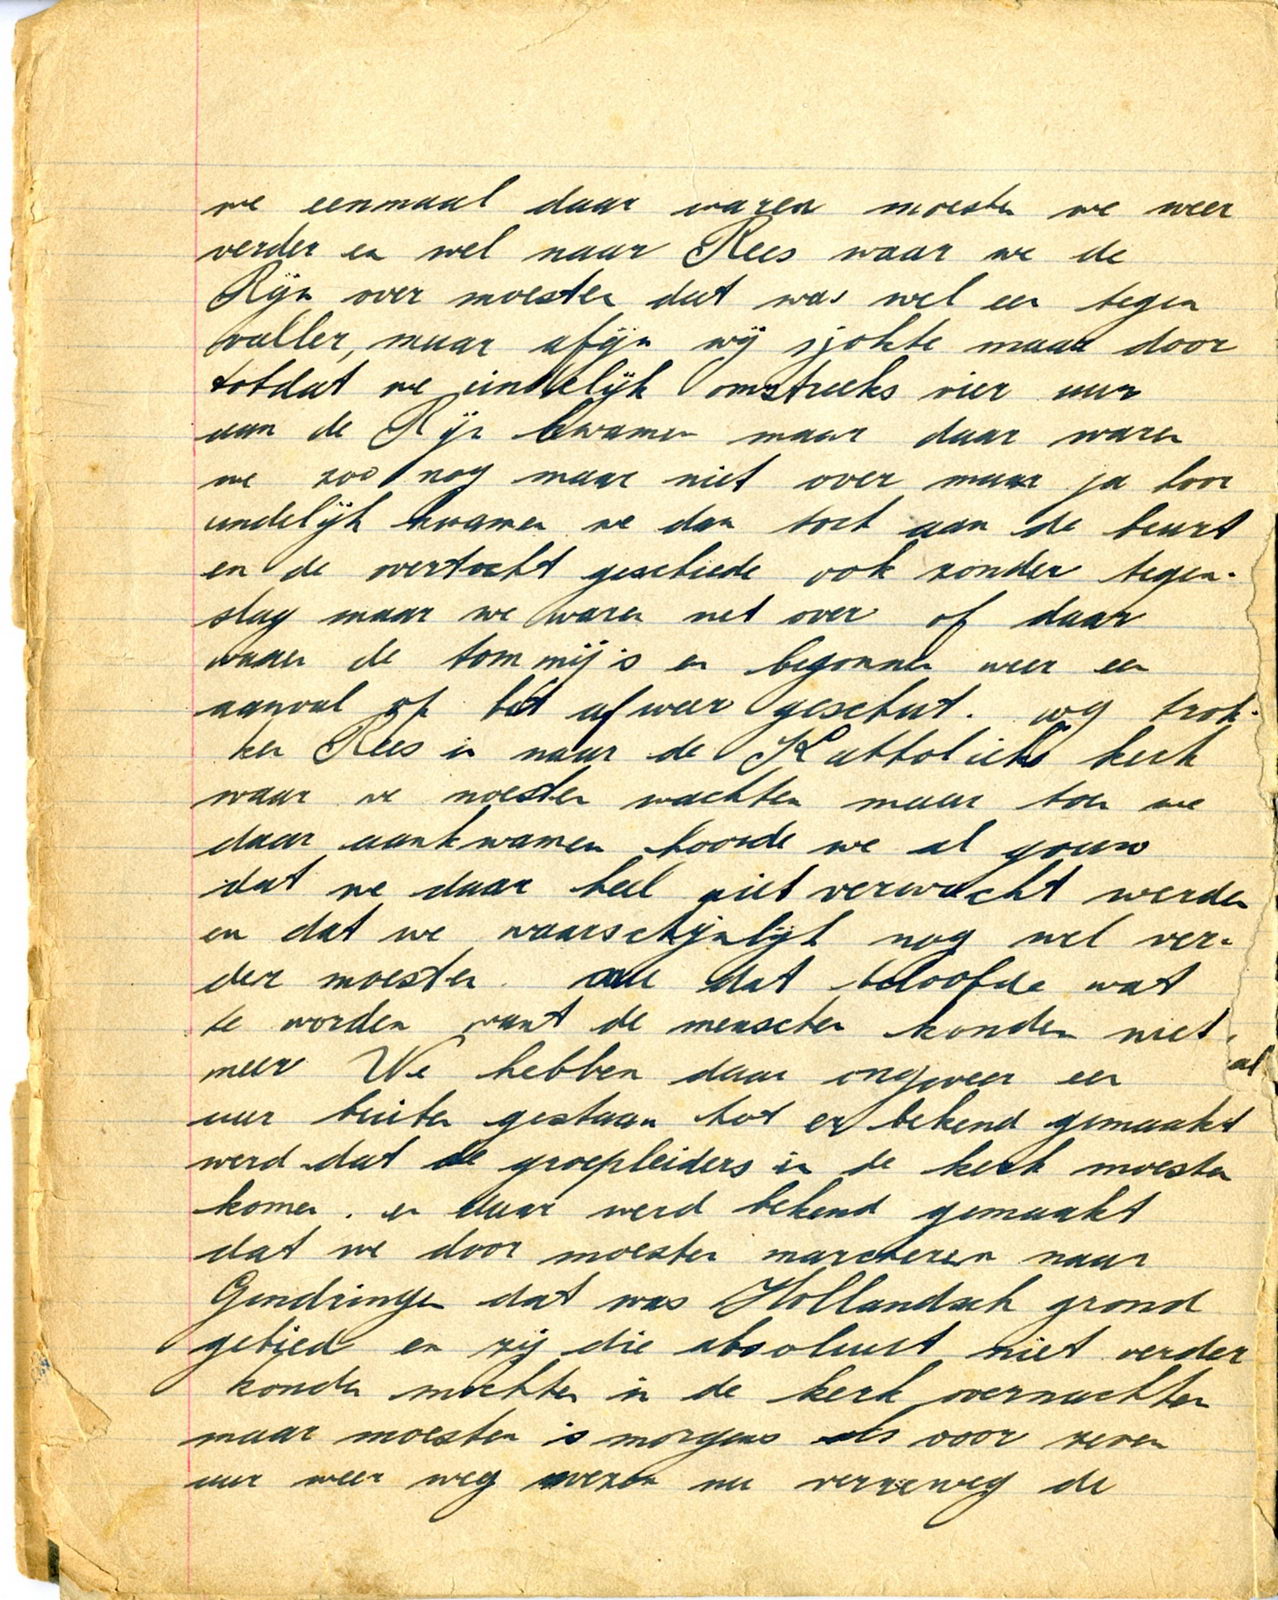 we eenmaal daar waren moesten we weer
verder en wel naar Rees waar we de
Rijn over moesten dat was wel een tegen
valler, maar afijn wij sjokte maar door
totdat we eindelijk omstreeks vier uur
aan de Rijn kwamen maar daar waren
we zoo nog maar niet over maar ja hoor
eindelijk kwamen we dan toch aan de beurt
en de overtocht geschiede ook zonder tegen-
slag maar we waren net over of daar
waren de tommij's en begonnen weer een
aanval op het afweer geschut. wij trok-
ken Rees in naar de Kattolieke kerk
waar we moesten wachten maar toen we
daar aankwamen hoorde we al gouw
dat we daar heel niet verwacht werden
en dat we waarschijnlijk nog wel ver-
der moesten. dat beloofde wat
te worden want de menschen konden niet
meer We hebben daar ongeveer een al
uur buiten gestaan tot er bekend gemaakt
werd dat de groepleiders in de kerk moesten
komen. en daar werd bekend gemaakt
dat we door moesten marcheren naar
Gendringen dat was Hollandsch grond
gebied en zij die absoluut niet verder
konden mochten in de kerk overnachten
maar moesten is morgens als voor zeven
uur weer weg wezen nu verreweg de